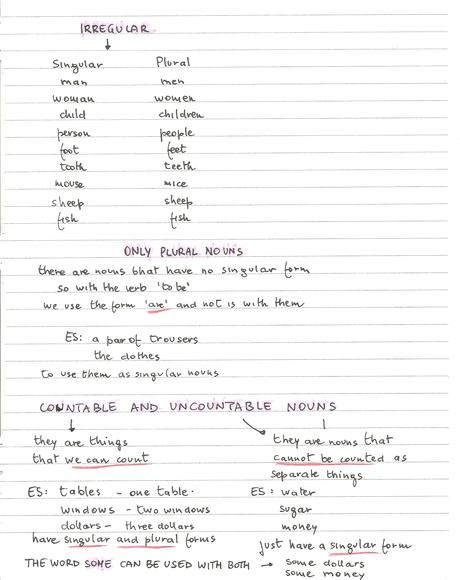 IRREGULAR
Singular Plural
man men
woman women
child children
person people
foot feet
tooth teeth
mouse mice
sheep sheep
fish fish
ONLY PLURAL NOUNS
there are nouns that have no singular form
so with the verb 'to be'
we use the form 'are' and not is with them
ES: a par of trousers
the clothes
to use them as singular nouns
COUNTABLE AND UNCOUNTABLE NOUNS
they are things
that we can count
they are nouns that
cannot be counted as
separate things
ES: tables - one table.
windows - two windows
dollars - three dollars
have singular and plural forms
ES: water
sugar
money
just have a singular form
THE WORD SOME CAN BE USED WITH BOTH → some dollars
some money